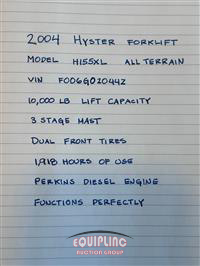 2004 HYSTER FORKLIFT
MODEL H155XL ALL TERRAIN
VIN F006G02044Z
10,000 LB LIFT CAPACITY
3 STAGE MAST
DUAL FRONT TIRES
1,918 HOURS OF USE
PERKINS DIESEL ENGINE
FUNCTIONS PERFECTLY
EQUIPLINC
AUCTION GROUP